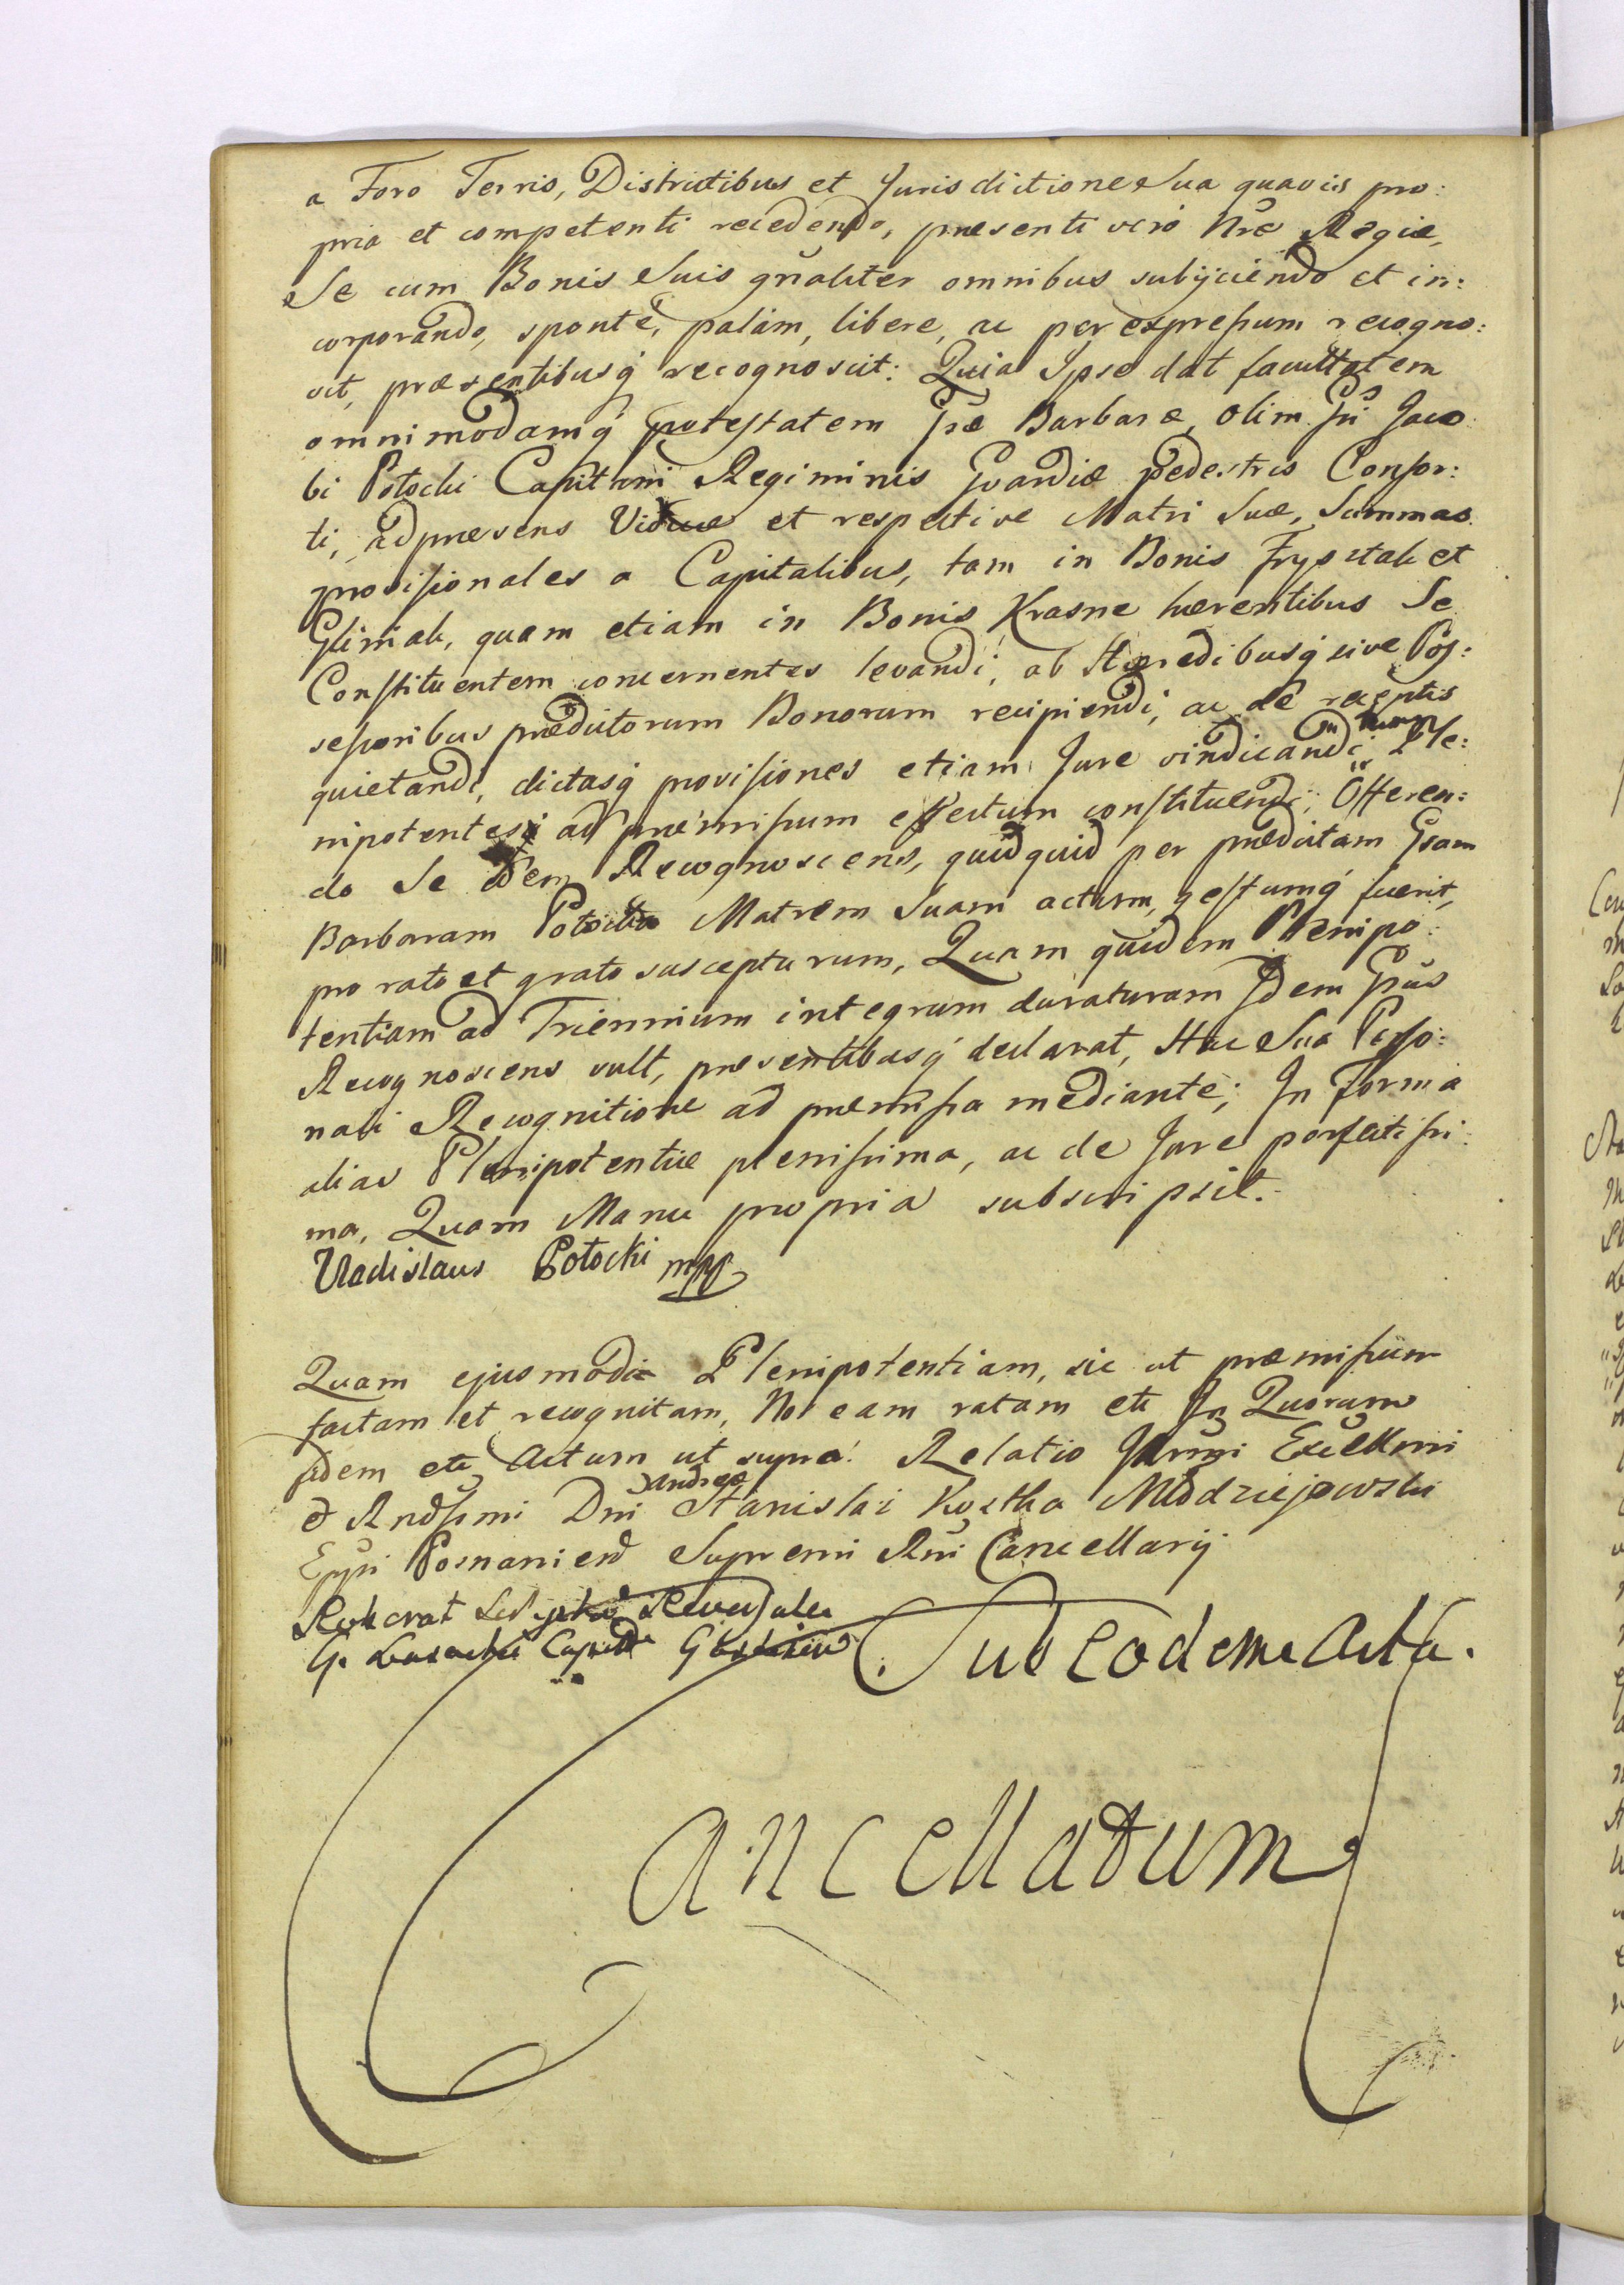 a Foro Terris, Districtibus et Jurisdictione Sua quavis pro:
pria et competenti recedendo, præsenti vero Nræ Regiæ,
Se cum Bonis Suis gñaliter omnibus subijciendo et in:
corporando, sponte, palàm, libere, ac per expressum recogno:
vit, præsentibusq́ recognoscit: Quia Ipse dat facultatem
omnimodamq́ potestatem Gsæ Barbaræ, olim Gsi Jaco
bi Potocki Capitanei Regiminis Gvardiæ pedestris Consor:
ti, ad præsens Viduæ et respective Matri Suæ, Summas
provisionales a Capitalibus, tam in Bonis Frysztak et
Gliniak, quam etiam in Bonis Krasne hærentibus Se
Constituentem concernentes levandi, ab Hæredibusq́ sive Pos:
sessoribus prædictorum Bonorum recipiendi, ac de receptis
quietandi, dictasq́ provisiones etiam Jure vindicandi, Ple:
nipotentes ad præmissum effectum constituendi; Offeren:
do Se Idem Recognoscens, quidquid per prædictam Gsam
Barbaram Potocka Matrem Suam actum, gestumq́ fuerit,
pro rato et grato suscepturum, Quam quidem Plenipo:
tentiam ad Triennium integrum duraturam Idem Gsus
Recognoscens vult, præsentibusq́ declarat, Hac Sua Perso:
nali Recognitione ad præmissa mediante; In Forma
alias Plenipotentiæ plenissima, ac de Jure perfectissi:
ma, Quam Manu propria subscripsit.
Vladislaus Potocki mpp
Quam ejusmodi Plenipotentiam, sic ut præmissum
factam et recognitam, Nos eam ratam etc In Quorum
fidem etc Actum ut supra. Relatio Illrmi Excellmi
& Rndssmi Dni Andreæ Stanislai Kostka Młodziejowski
Eppi Posnanien Supremi Rni Cancellarij
Sub eodem Actu.
Cancellatum